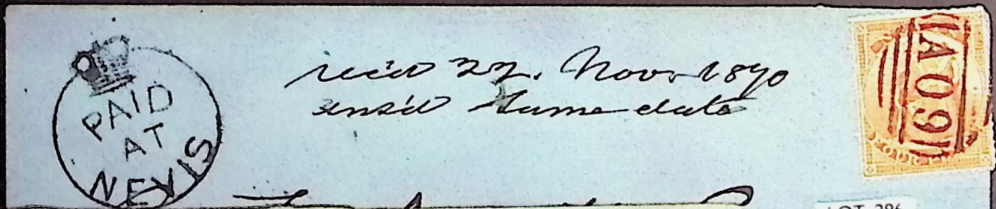 PAID
AT
NEVIS
recd 22. Nov. 1870
ansd same date
A09
LOT 286